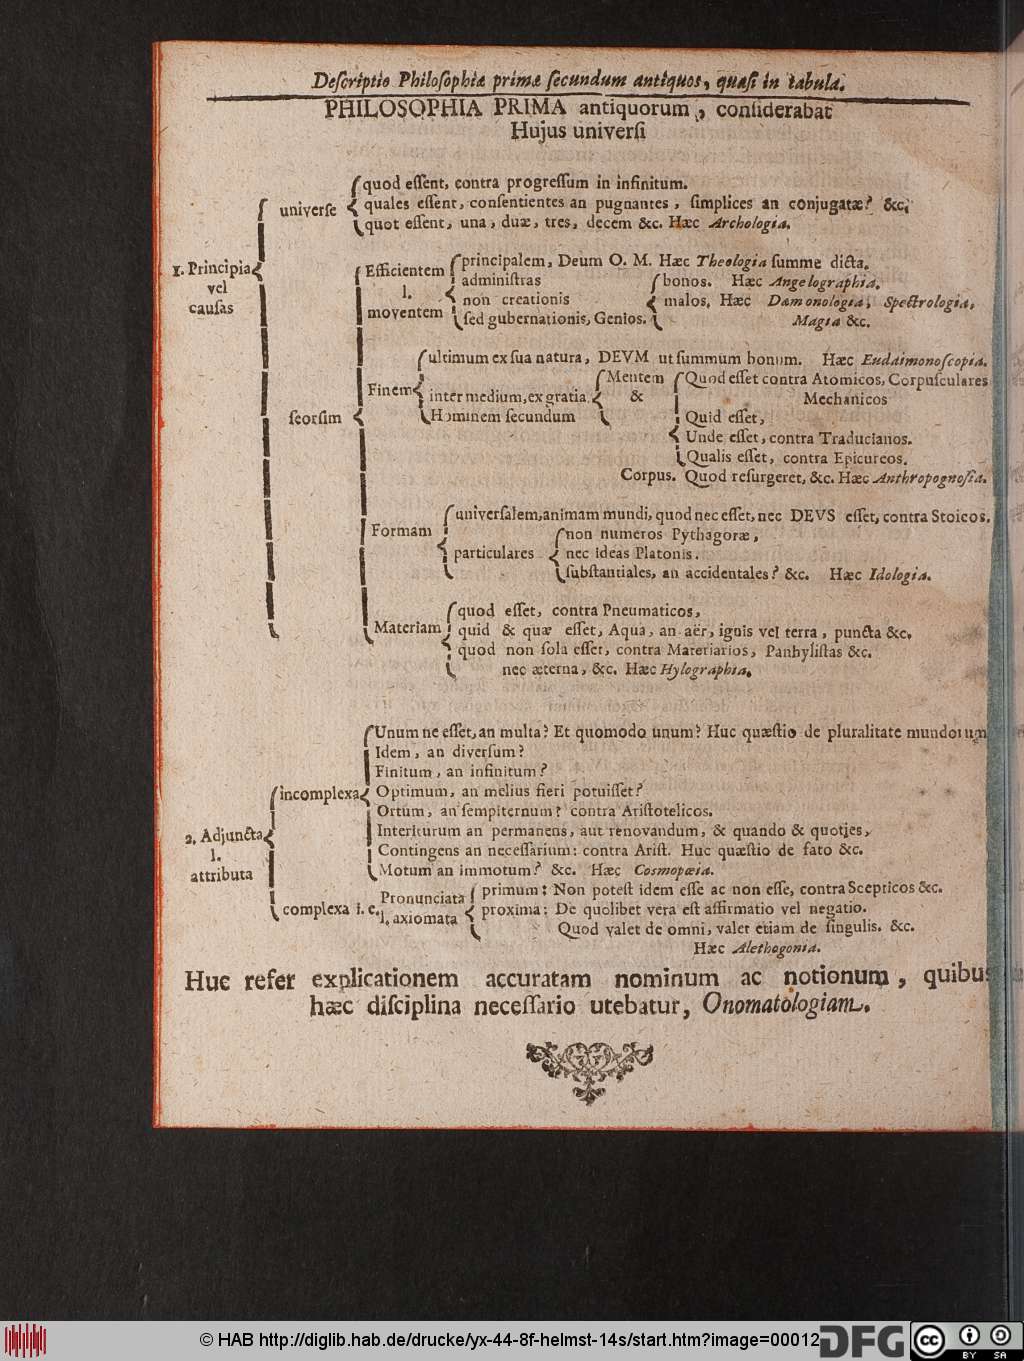 Deſcriptio Philoſophiæ primæ ſecundum antiquos, quaſi in tabula.
PHILOSOPHIA PRIMA antiquorum, conſiderabat
Hujus univerſi
1. Principia
vel
cauſas
univerſe
quod eſſent, contra progreſſum in infinitum.
quales eſſent, conſentientes an pugnantes, ſimplices an conjugatæ? &c.
quot eſſent, una, duæ, tres, decem &c. Hæc Archologia.
ſeorſim
Efficientem
l.
moventem
principalem, Deum O. M. Hæc Theologia ſumme dicta.
adminiſtras
non creationis
ſed gubernationis, Genios.
bonos. Hæc Angelographia.
malos, Hæc Dæmonologia, Spectrologia,
Magia &c.
Finem
ultimum ex ſua natura, DEVM ut ſummum bonum. Hæc Eudaimonoſcopia.
intermedium, ex gratia
Hominem ſecundum
Mentem
&
Quod eſſet contra Atomicos, Corpuſculares
Mechanicos
Quid eſſet,
Unde eſſet, contra Traducianos.
Qualis eſſet, contra Epicureos.
Corpus. Quod reſurgeret, &c. Hæc Anthropognoſia.
Formam
univerſalem, animam mundi, quod nec eſſet, nec DEVS eſſet, contra Stoicos.
particulares
non numeros Pythagoræ,
nec ideas Platonis.
ſubſtantiales, an accidentales? &c. Hæc Idologia.
Materiam
quod eſſet, contra Pneumaticos,
quid & quæ eſſet, Aqua, an aër, ignis vel terra, puncta &c.
quod non ſola eſſet, contra Materiarios, Panhyliſtas &c.
nec æterna, &c. Hæc Hylographia.
2. Adjuncta
l.
attributa
incomplexa
Unum ne eſſet, an multa? Et quomodo unum? Huc quæſtio de pluralitate mundorum
Idem, an diverſum?
Finitum, an infinitum?
Optimum, an melius fieri potuiſſet?
Ortum, an ſempiternum? contra Ariſtotelicos.
Interiturum an permanens, aut renovandum, & quando & quoties,
Contingens an neceſſarium: contra Ariſt. Huc quæſtio de fato &c.
Motum an immotum? &c. Hæc Cosmopœia.
complexa i. e.
Pronunciata
l. axiomata
primum: Non poteſt idem eſſe ac non eſſe, contra Scepticos &c.
proxima: De quolibet vera eſt affirmatio vel negatio.
Quod valet de omni, valet etiam de ſingulis. &c.
Hæc Alethogonia.
Huc refer explicationem accuratam nominum ac notionum, quibus
hæc diſciplina neceſſario utebatur, Onomatologiam.
© HAB http://diglib.hab.de/drucke/yx-44-8f-helmst-14s/start.htm?image=00012
DFG
cc
BY SA